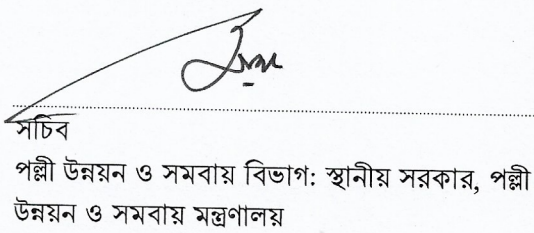 সচিব
পল্লী উন্নয়ন ও সমবায় বিভাগ: স্থানীয় সরকার, পল্লী
উন্নয়ন ও সমবায় মন্ত্রণালয়